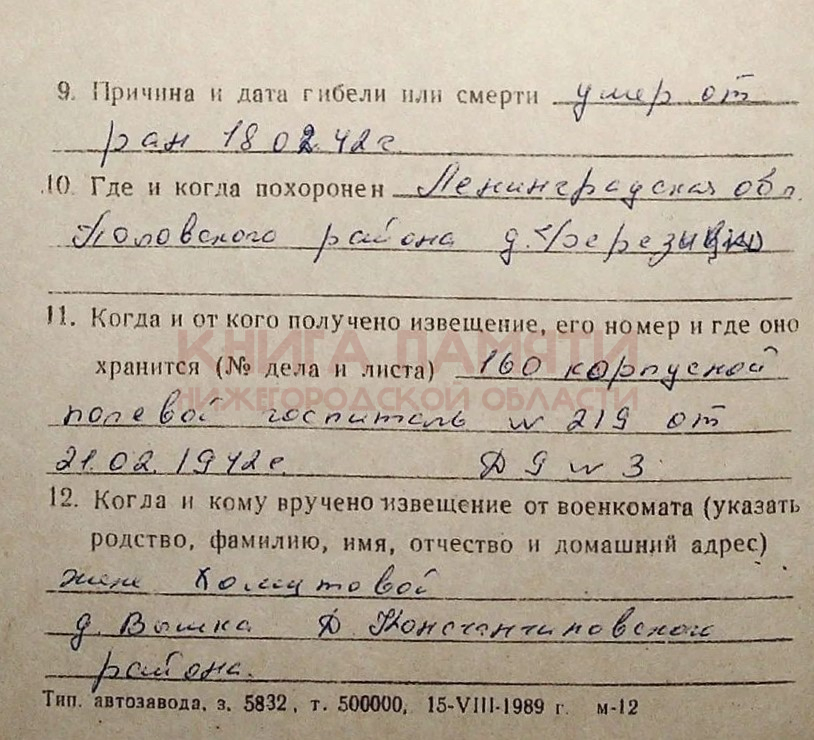 9. Причина и дата гибели или смерти умер от
ран 18 02. 42 г.
10. Где и когда похоронен Ленинградская обл.
района д.
11. Когда и от кого получено извещение, его номер и где оно
КНИГА ПАМЯТИ
хранится (№ дела и листа) 160 корпусной
НИЖЕГОРОДСКОЙ ОБЛАСТИ
полевой госпиталь N 219 от
21.02.1942 г. Д 9 N 3
12. Когда и кому вручено извещение от военкомата (указать
родство, фамилию, имя, отчество и домашний адрес)
жене Хомутовой
д. Вышка Д Константиновского
района.
Тип. автозавода, з. 5832, т. 500000, 15-VIII-1989 г. м-12